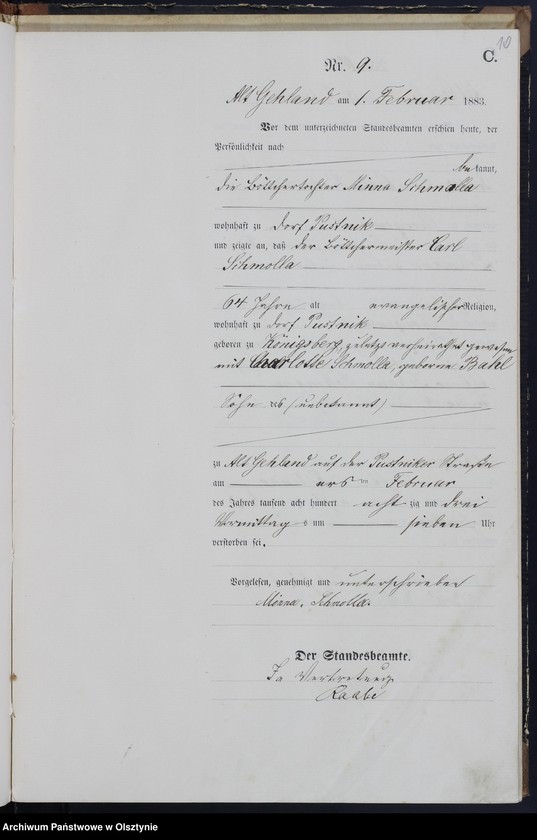 10
C.
Nr. 9.
Alt Gehland am 1. Februar 1883.
Vor dem unterzeichneten Standesbeamten erschien heute, der
Persönlichkeit nach
bekannt,
die Böttchertochter Minna Schmolla
wohnhaft zu Dorf Pustnik
und zeigte an, daß der Böttchermeister Carl
Schmolla
64 Jahre alt evangelischer Religion,
wohnhaft zu Dorf Pustnik
geboren zu Königsberg, zuletzt verheirathet gewesen
mit Charlotte Schmolla, geborene Bahl
Sohn des (unbekannt)
zu Alt Gehland auf der Pustniker Straße
am ersten Februar
des Jahres tausend acht hundert achtzig und drei
Vormittags um sieben Uhr
verstorben sei.
Vorgelesen, genehmigt und unterschrieben
Minna. Schmolla.
Der Standesbeamte.
In Vertretung
Raabe
Archiwum Państwowe w Olsztynie